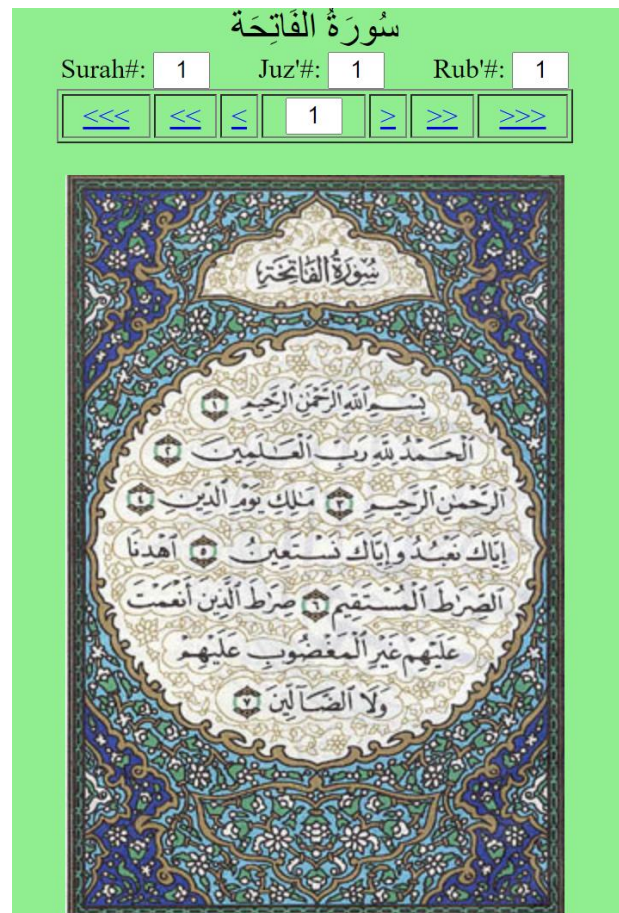 سُورَةُ الفَاتِحَة
Surah#: 1 Juz'#: 1 Rub'#: 1
<<< << < 1 > >> >>>
سُورَةُ الفَاتِحَةِ
بِسْمِ ٱللَّهِ ٱلرَّحْمَٰنِ ٱلرَّحِيمِ ١
ٱلْحَمْدُ لِلَّهِ رَبِّ ٱلْعَٰلَمِينَ ٢
ٱلرَّحْمَٰنِ ٱلرَّحِيمِ ٣ مَٰلِكِ يَوْمِ ٱلدِّينِ ٤
إِيَّاكَ نَعْبُدُ وَإِيَّاكَ نَسْتَعِينُ ٥ ٱهْدِنَا
ٱلصِّرَٰطَ ٱلْمُسْتَقِيمَ ٦ صِرَٰطَ ٱلَّذِينَ أَنْعَمْتَ
عَلَيْهِمْ غَيْرِ ٱلْمَغْضُوبِ عَلَيْهِمْ
وَلَا ٱلضَّآلِّينَ ٧